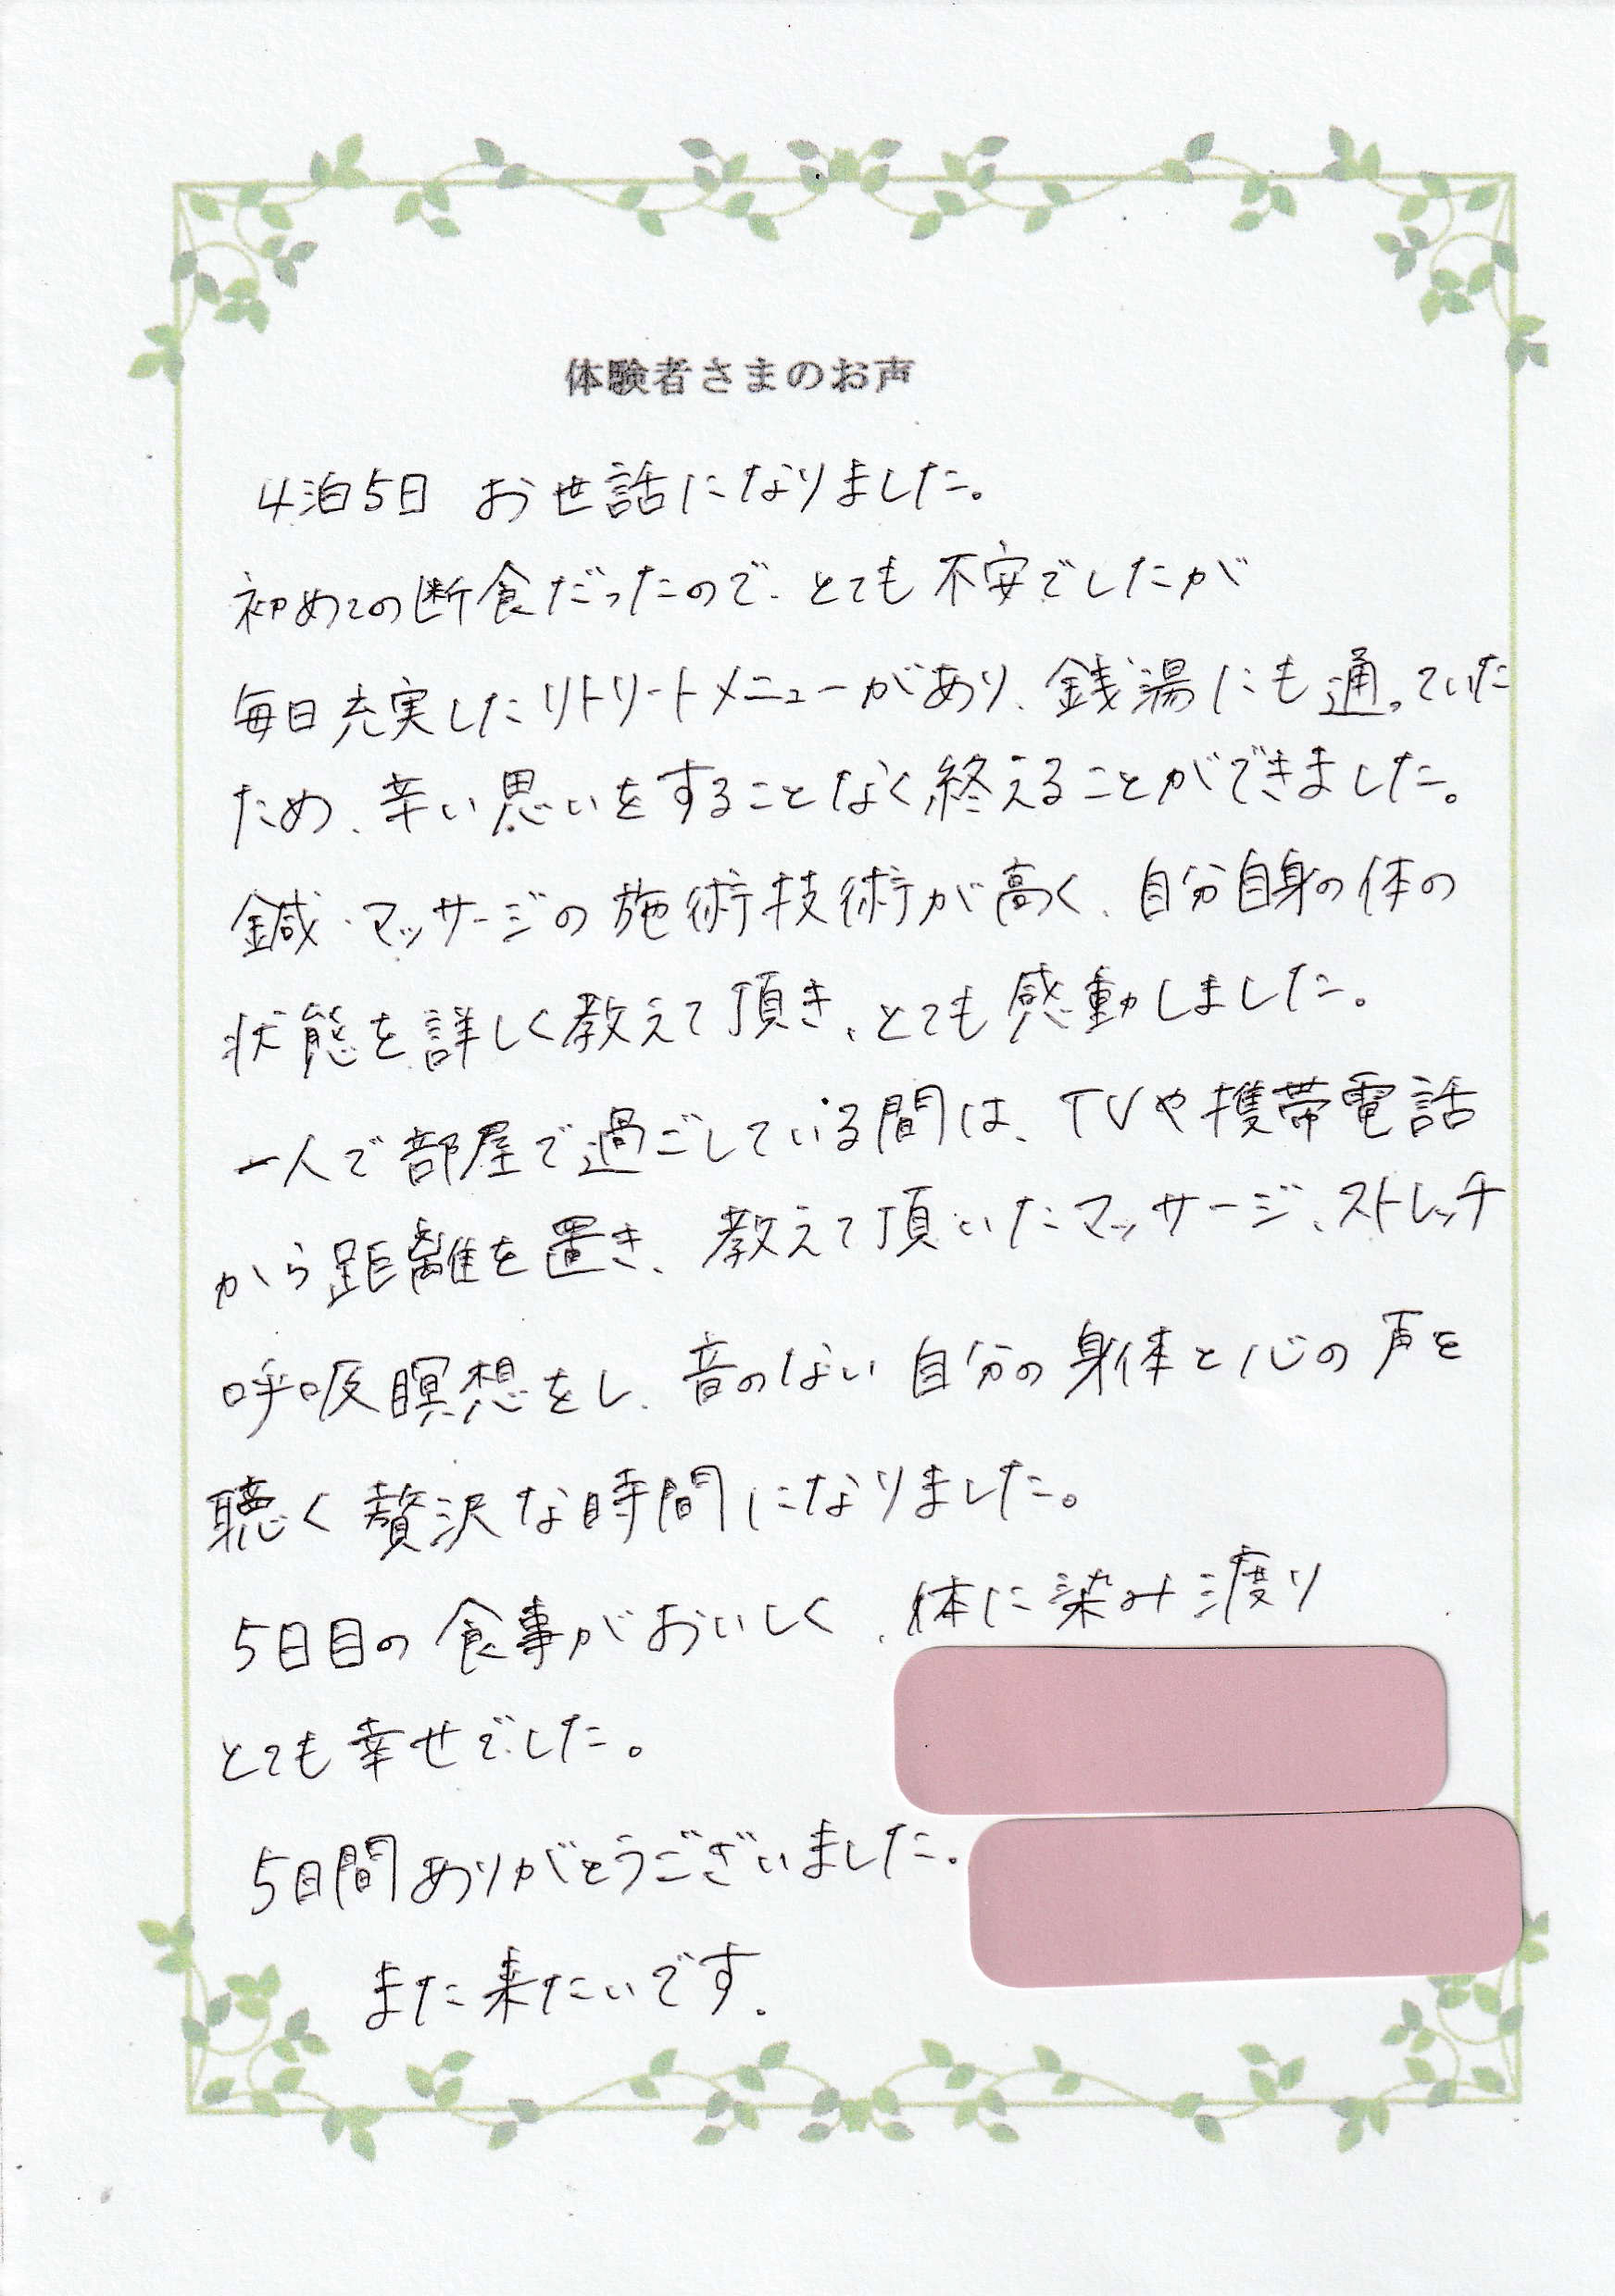 体験者さまのお声
4泊5日 お世話になりました。
初めての断食だったので、とても不安でしたが
毎日充実したリトリートメニューがあり、銭湯にも通っていた
ため、辛い思いをすることなく終えることができました。
鍼・マッサージの施術技術が高く、自分自身の体の
状態を詳しく教えて頂き、とても感動しました。
一人で部屋で過ごしている間は、TVや携帯電話
から距離を置き、教えて頂いたマッサージ、ストレッチ
呼吸瞑想をし、音のない自分の身体と心の声を
聴く贅沢な時間になりました。
5日目の食事がおいしく、体に染み渡り
とても幸せでした。
5日間ありがとうございました。
また来たいです.